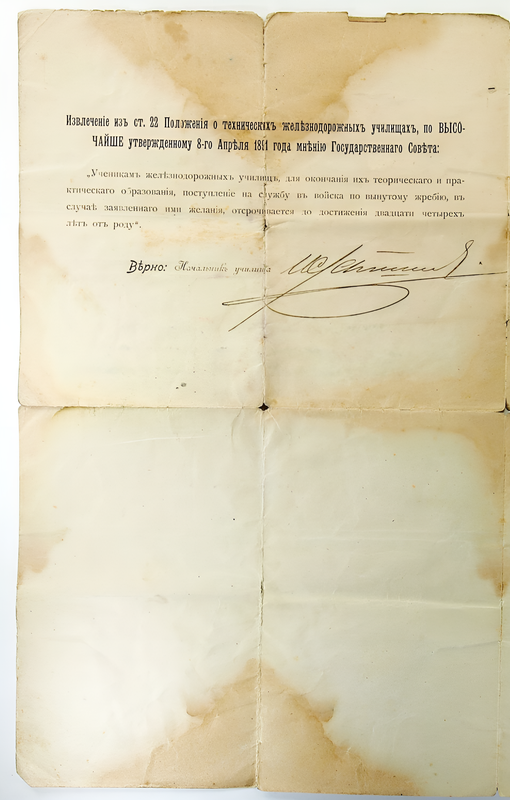 Извлеченіе изъ ст. 22 Положенія о техническихъ желѣзнодорожныхъ училищахъ, по ВЫСО-
ЧАЙШЕ утвержденному 8-го Апрѣля 1881 года мнѣнію Государственнаго Совѣта:
„Ученикамъ желѣзнодорожныхъ училищъ, для окончанія ихъ теоретическаго и пра-
ктическаго образованія, поступленіе на службу въ войска по вынутому жребію, въ
случаѣ заявленнаго ими желанія, отсрочивается до достиженія двадцати четырехъ
лѣтъ отъ роду“.
Вѣрно: Начальникъ училища